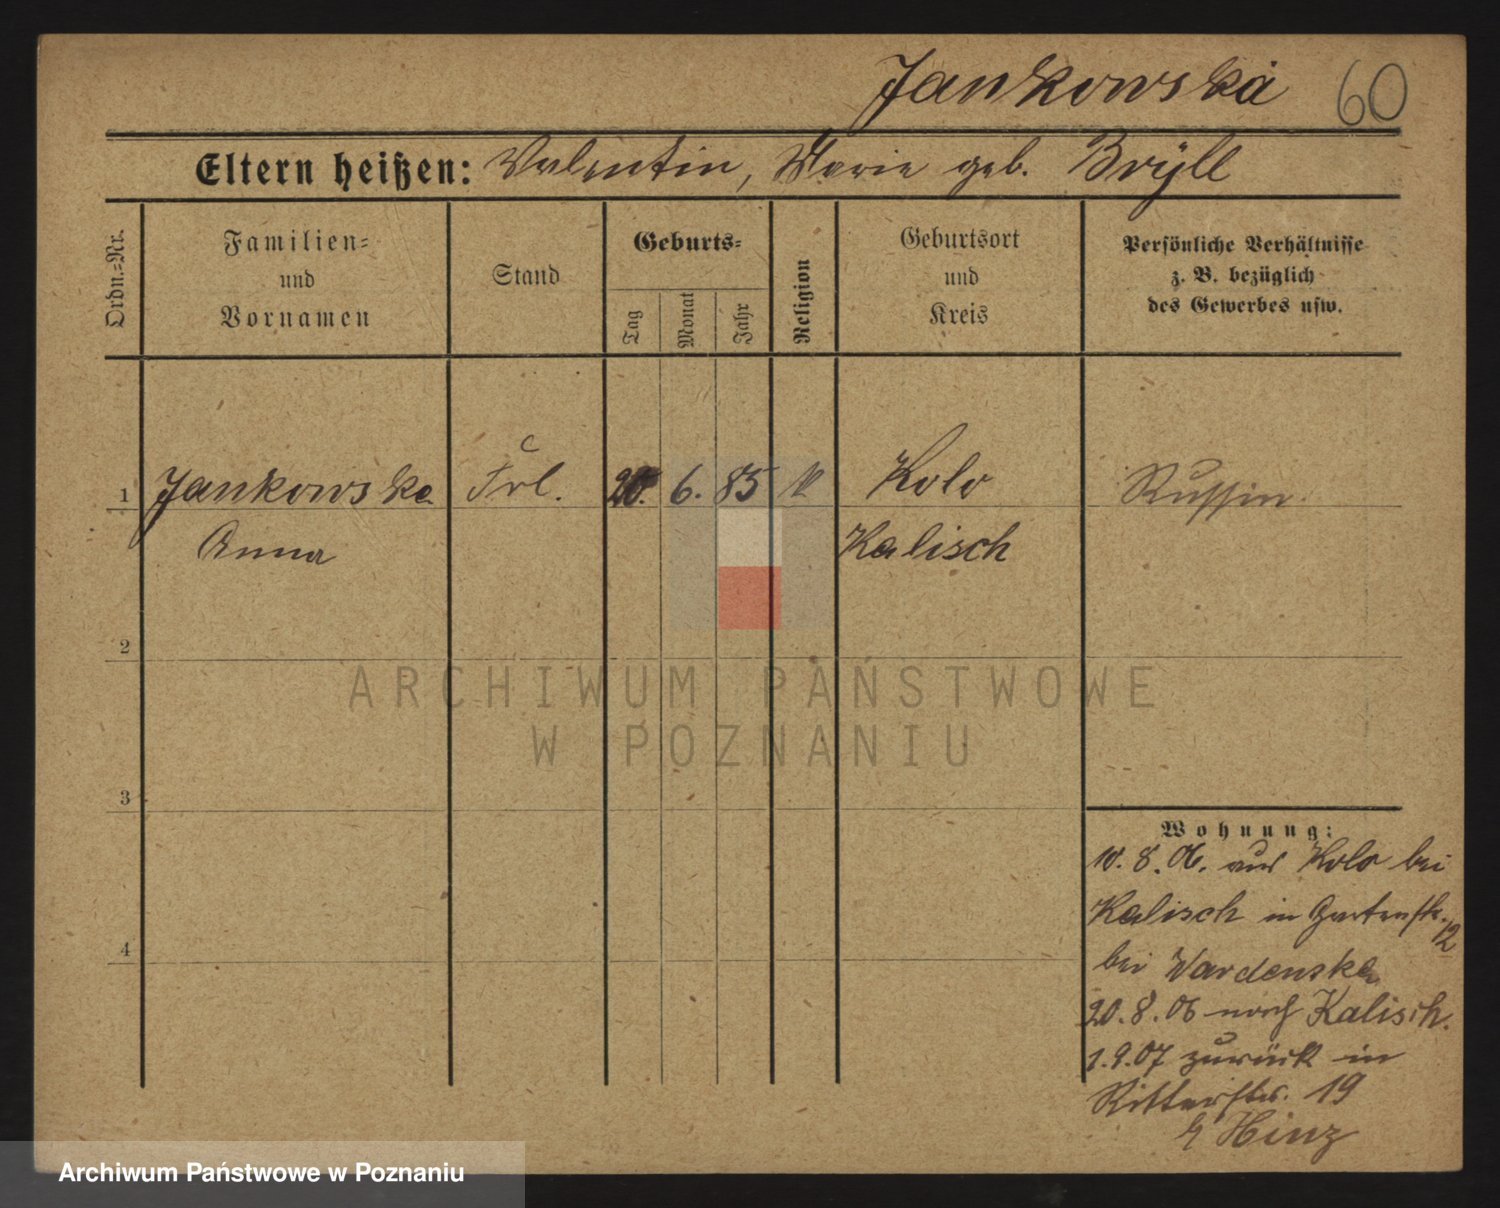 Jankowska 60
Eltern heißen: Valentin, Marie geb. Bryll
Ordn.=Nr.
Familien=
und
Vornamen
Stand
Geburts=
Tag
Monat
Jahr
Religion
Geburtsort
und
Kreis
Persönliche Verhältnisse
z. B. bezüglich
des Gewerbes usw.
1 Jankowska Frl. 20. 6. 85 k Kolo Russin
Anna Kalisch
2
3
4
Wohnung:
10. 8. 06. aus Kolo bei
Kalisch in Gartenstr. 12
bei Wardenska
20. 8. 06 nach Kalisch.
1. 9. 07 zurück in
Ritterstr. 19
Hinz
ARCHIWUM PAŃSTWOWE
W POZNANIU
Archiwum Państwowe w Poznaniu